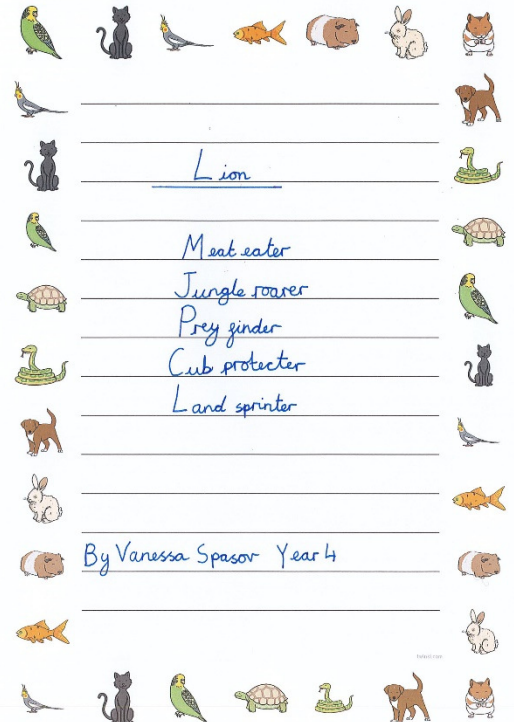 Lion
Meat eater
Jungle roarer
Prey finder
Cub protecter
Land sprinter
By Vanessa Spasov Year 4